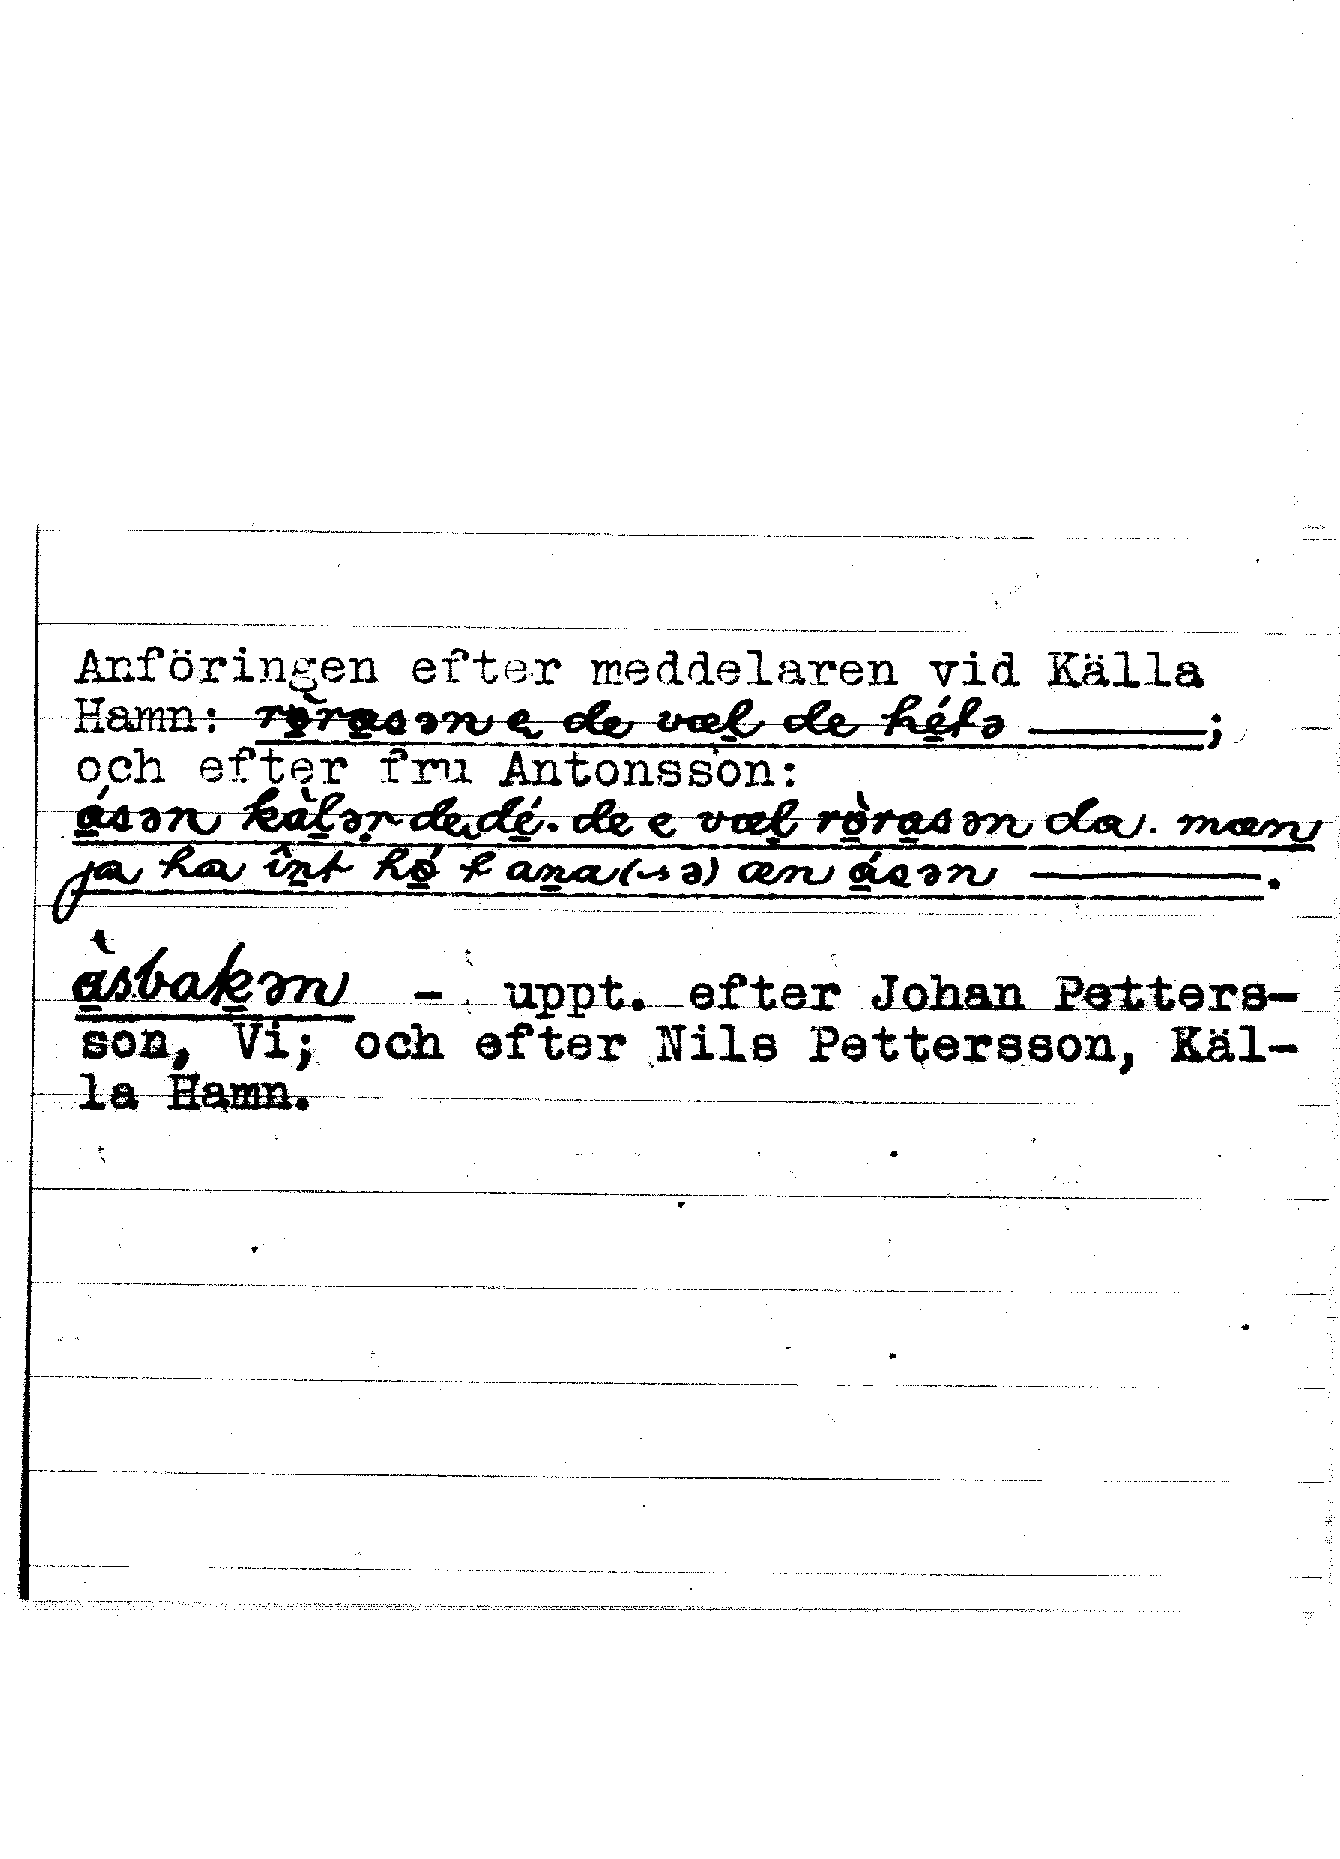 Anföringen efter meddelaren vid Källa
Hamn: rò̱ra̱sən e de væḷ de hé̱tə ———;
och efter fru Antonsson:
á̱sən kàḻəṛ de dé̱. de e væḷ rò̱ra̱sən da. mæn
ja ha înt hǿ̱t aṉa(-sə) æn á̱sən ———.
à̱sbaḵən - uppt. efter Johan Petters-
son, Vi; och efter Nils Pettersson, Käl-
la Hamn.